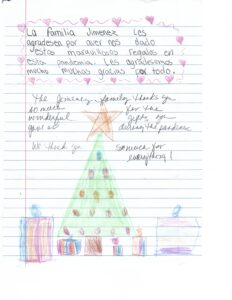 La Familia Jimenez Les
agradesea por aver nos dado
estos maravillosos regalos en
esta pandemia. Les agradesimos
mucho muchas gracias por todo.
The Jimenez family thanks you
so much for the
wonderful gifts you
gave us during the pandemic
We thank you so much for
everything!